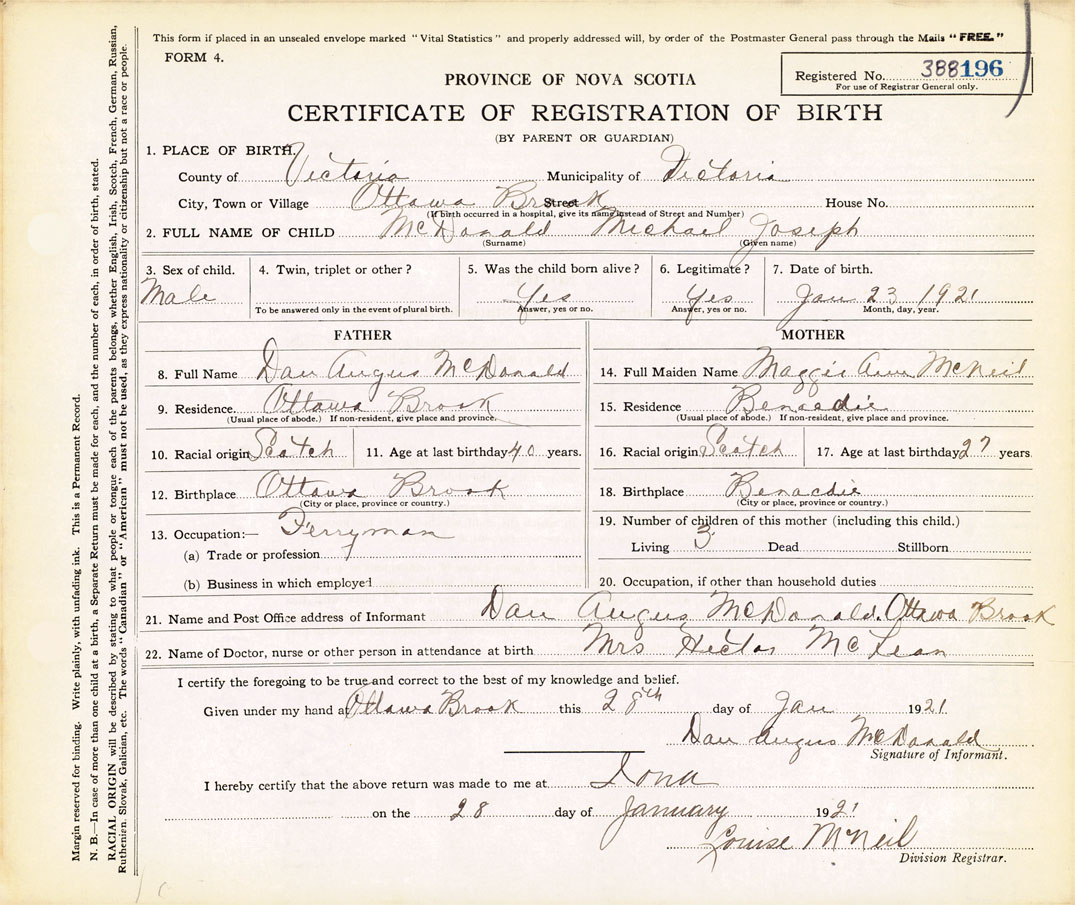 This form if placed in an unsealed envelope marked "Vital Statistics" and properly addressed will, by order of the Postmaster General pass through the Mails "FREE."
FORM 4.
Registered No. 388196
For use of Registrar General only.
PROVINCE OF NOVA SCOTIA
CERTIFICATE OF REGISTRATION OF BIRTH
(BY PARENT OR GUARDIAN)
1. PLACE OF BIRTH
County of Victoria Municipality of Victoria
City, Town or Village Ottawa Brook Street House No.
(If birth occurred in a hospital, give its name instead of Street and Number)
2. FULL NAME OF CHILD McDonald Michael Joseph
(Surname) (Given name)
3. Sex of child. 4. Twin, triplet or other? 5. Was the child born alive? 6. Legitimate? 7. Date of birth.
Male Yes Yes Jan 23 1921
To be answered only in the event of plural birth. Answer, yes or no. Answer, yes or no. Month, day, year.
FATHER MOTHER
8. Full Name Dan Angus McDonald 14. Full Maiden Name Maggie Ann McNeil
9. Residence. Ottawa Brook 15. Residence Benacdie
(Usual place of abode.) If non-resident, give place and province. (Usual place of abode.) If non-resident, give place and province.
10. Racial origin Scotch 11. Age at last birthday 40 years. 16. Racial origin Scotch 17. Age at last birthday 27 years
12. Birthplace Ottawa Brook 18. Birthplace Benacdie
(City or place, province or country.) (City or place, province or country.)
13. Occupation:— Ferryman 19. Number of children of this mother (including this child.)
(a) Trade or profession Living 3 Dead Stillborn
(b) Business in which employed 20. Occupation, if other than household duties
21. Name and Post Office address of Informant Dan Angus McDonald. Ottawa Brook
22. Name of Doctor, nurse or other person in attendance at birth Mrs Hector McLean
I certify the foregoing to be true and correct to the best of my knowledge and belief.
Given under my hand at Ottawa Brook this 28th day of Jan 1921
Dan Angus McDonald
Signature of Informant.
I hereby certify that the above return was made to me at Iona
on the 28 day of January 1921
Louise McNeil
Division Registrar.
Margin reserved for binding. Write plainly, with unfading ink. This is a Permanent Record.
N. B.—In case of more than one child at a birth, a Separate Return must be made for each, and the number of each, in order of birth, stated.
RACIAL ORIGIN will be described by stating to what people or tongue each of the parents belongs, whether English, Irish, Scotch, French, German, Russian,
Ruthenian, Slovak, Galician, etc. The words "Canadian" or "American" must not be used, as they express nationality or citizenship but not a race or people.